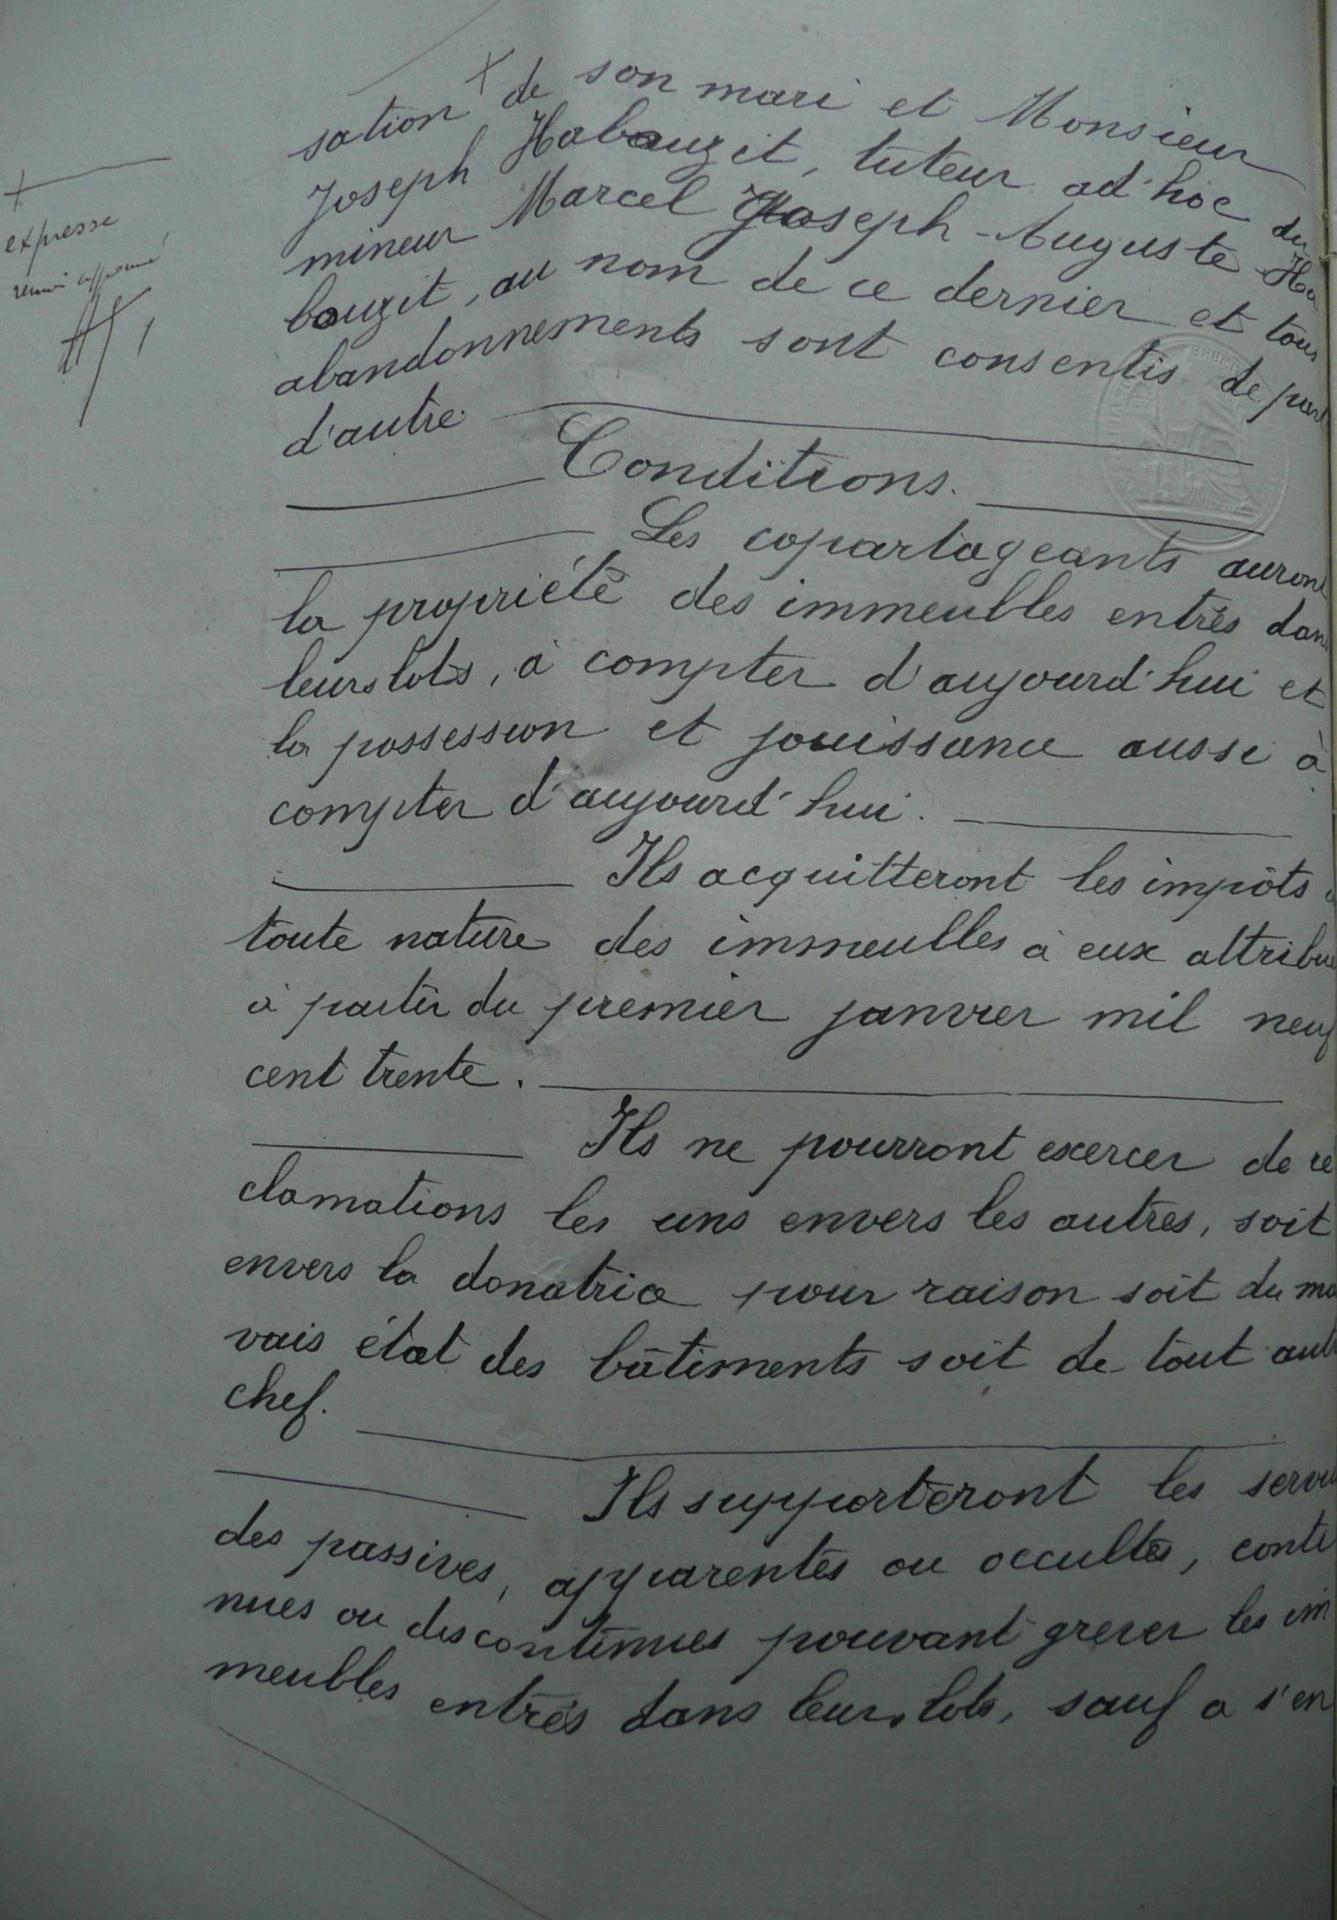 sation + de son mari et Monsieur
Joseph Habauzit, tuteur ad'hoc du
mineur Marcel Joseph-Auguste Ha
bauzit, au nom de ce dernier et tous
abandonnements sont consentis de part
d'autre
Conditions.
Les copartageants auront
la propriété des immeubles entrés dans
leurs lots, à compter d'aujourd'hui et
la possession et jouissance aussi à
compter d'aujourd'hui.
Ils acquitteront les impôts
toute nature des immeubles à eux attribu
à partir du premier janvier mil neuf
cent trente.
Ils ne pourront exercer de ré
clamations les uns envers les autres, soit
envers la donatrice pour raison soit du mau
vais état des bâtiments soit de tout autr
chef.
Ils supporteront les servitu
des passives, apparentes ou occultes, conti
nues ou discontinues pouvant grever les im
meubles entrés dans leurs lots, sauf a s'en
+
expresse
renvoi approuvé